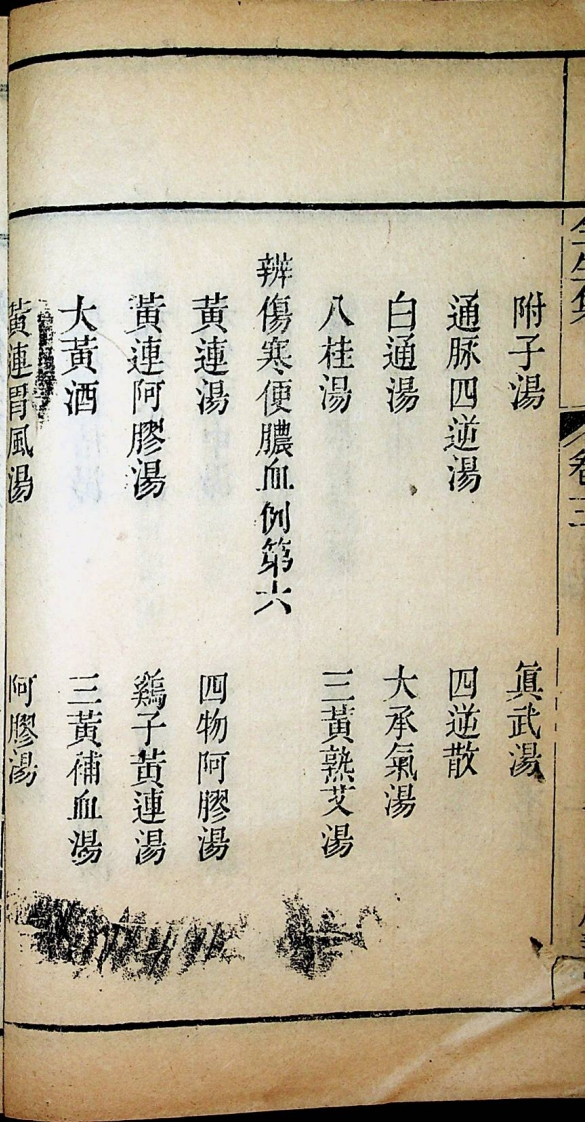 附子湯 眞武湯
通脉四逆湯 四逆散
白通湯 大承氣湯
八桂湯 三黃熟艾湯
辨傷寒便膿血例第六
黃連湯 四物阿膠湯
黃連阿膠湯 鷄子黃連湯
大黃酒 三黃補血湯
黃連胃風湯 阿膠湯